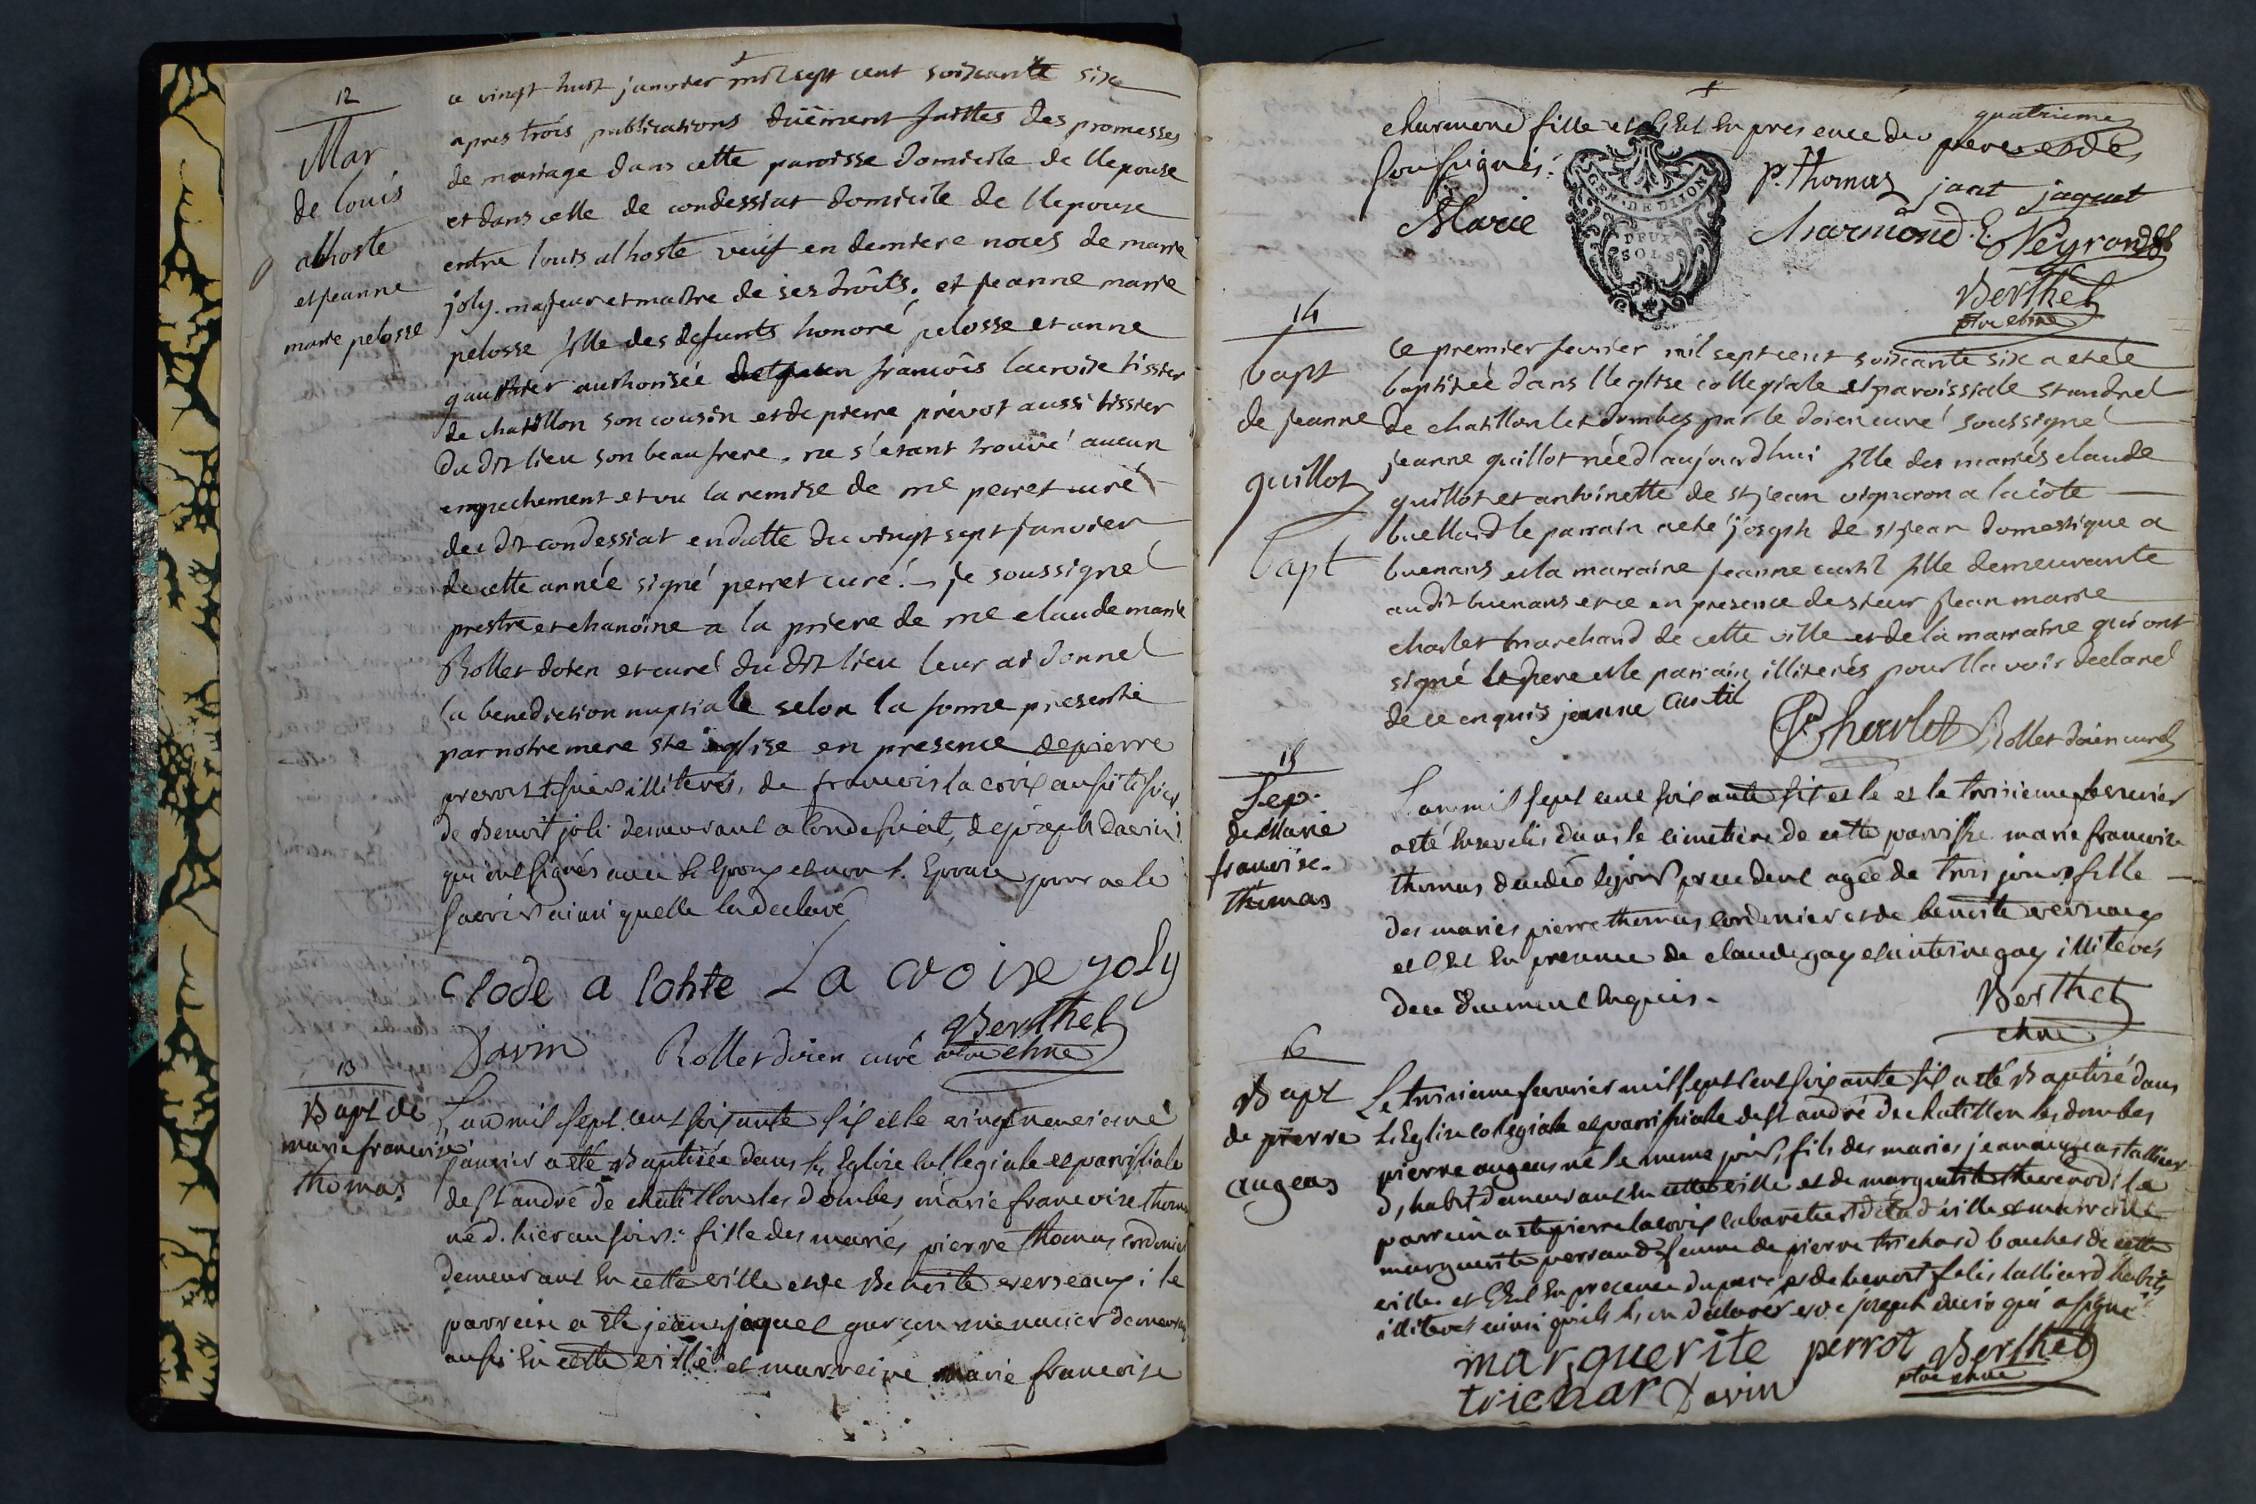 12
Mar
de louis
alhoste
et jeanne
marie pelosse
ce vingt huit janvier mil sept cent soixante six
apres trois publications düement faittes des promesses
de mariage dans cette paroisse domicile de l'epouse
et dans celle de condessiat domicile de l'epoux
entre louis alhoste veuf en derniere noces de marie
joly. majeur et maitre de ses droits. et jeanne marie
pelosse fille des defunts honoré pelosse et anne
gauthier authorisée francois lacroix tissier
de chatillon son cousin et de pierre prévot aussi tissier
du dit lieu son beau frere. ne s'etant trouvé aucun
empechement et vu la remise de me perret curé
du dit condessiat en datte du vingt sept janvier
de cette année signé perret curé. je soussigné
prestre et chanoine a la priere de me claude marie
Rollet doien et curé du dit lieu leur ai donné
la benediction nuptiale selon la forme prescritte
par notre mere ste eglise en presence de pierre
prevost tissier illiterés, de francois la croix aussi tissier
de Benoit joli demeurant a Condessiat, de joseph davin
qui ont signés avec L'Epoux et non L. Epouse pour ne le
scavoir ainsi quelle la declaré
clode a lohte La croise joly
Davin Rollet doien curé Berthet
ptre chne
13
Bapt de
marie francoise
thomas
L'an mil sept cent soixante six et le vingt neuvieme
janvier a été Baptisée dans L'Eglise collegiale et paroissiale
de St andré de chatillon les dombes marie francoise thomas
né d. hier au soir: fille des mariés pierre thomas cordonnier
demeurant En cette ville et de Benoite verseaux; le
parrein a été jean jaquet garçon menuier demeurant
aussi En cette ville et marreine marie francoise
charmond fille et Cel En presence du quatrieme
soussignés:
GEN. DE DIJON
DEUX
SOLS
Marie P. Thomas jant jaquet
charmond. E. Neyrond
Berthet
ptre chne
14
bapt
de jeanne
guillot
bapt
Ce premier fevrier mil sept cent soixante six a etée
baptisée dans l'eglise collegiale et paroissiale st andré
de chatillon les dombes par le doien curé soussigné
jeanne guillot née d'aujourdhui fille des mariés claude
guillot et antoinette de st jean vigneron a la cote
buellard le parrain a eté joseph de st jean domestique a
buenans et la marraine jeanne curtil fille demeurante
au dit buenans et ce en presence de sieur jean marie
charlet marchand de cette ville et de la marraine qui ont
signé le pere et le parrain illiterés pour l'avoir declaré
de ce enquis jeanne curtil
Charlet Rollet doien curé
15
Sep.
de Marie
francoise.
thomas
L'an mil sept cent soixante six et le et le troisieme fevrier
a été Ensevelie dans le cimetiere de cette paroisse marie francoise
thomas decedée le jour precedent agée de trois jours fille
des mariés pierre thomas cordonnier et de benoite verseaux
et Cel En presence de claude gay et antoine gay illiterés
de ce duement Enquis.
Berthet
chne
16
Bapt
de pierre
augeas
Le troisieme fevrier mil sept cent soixante six a été Baptisé dans
L'Eglise collegiale et paroissiale de St andré de chatillon les dombes
pierre augeas né le meme jour, fils des mariés jean augeas tallieur
d'habit demeurant En cette ville et de marguerite thevenod; le
parrein a été pierre lacroix cabaretier de la d. ville et marreine
marguerite perraud femme de pierre trichard boucher de cette
ville et Cel En presence du pere et de benoit felix tallieur d'habits
illiterés ainsi qu'ils L'on declarer et de joseph davin qui a signé
marguerite perrot Berthet
ptre chne
trichar Davin